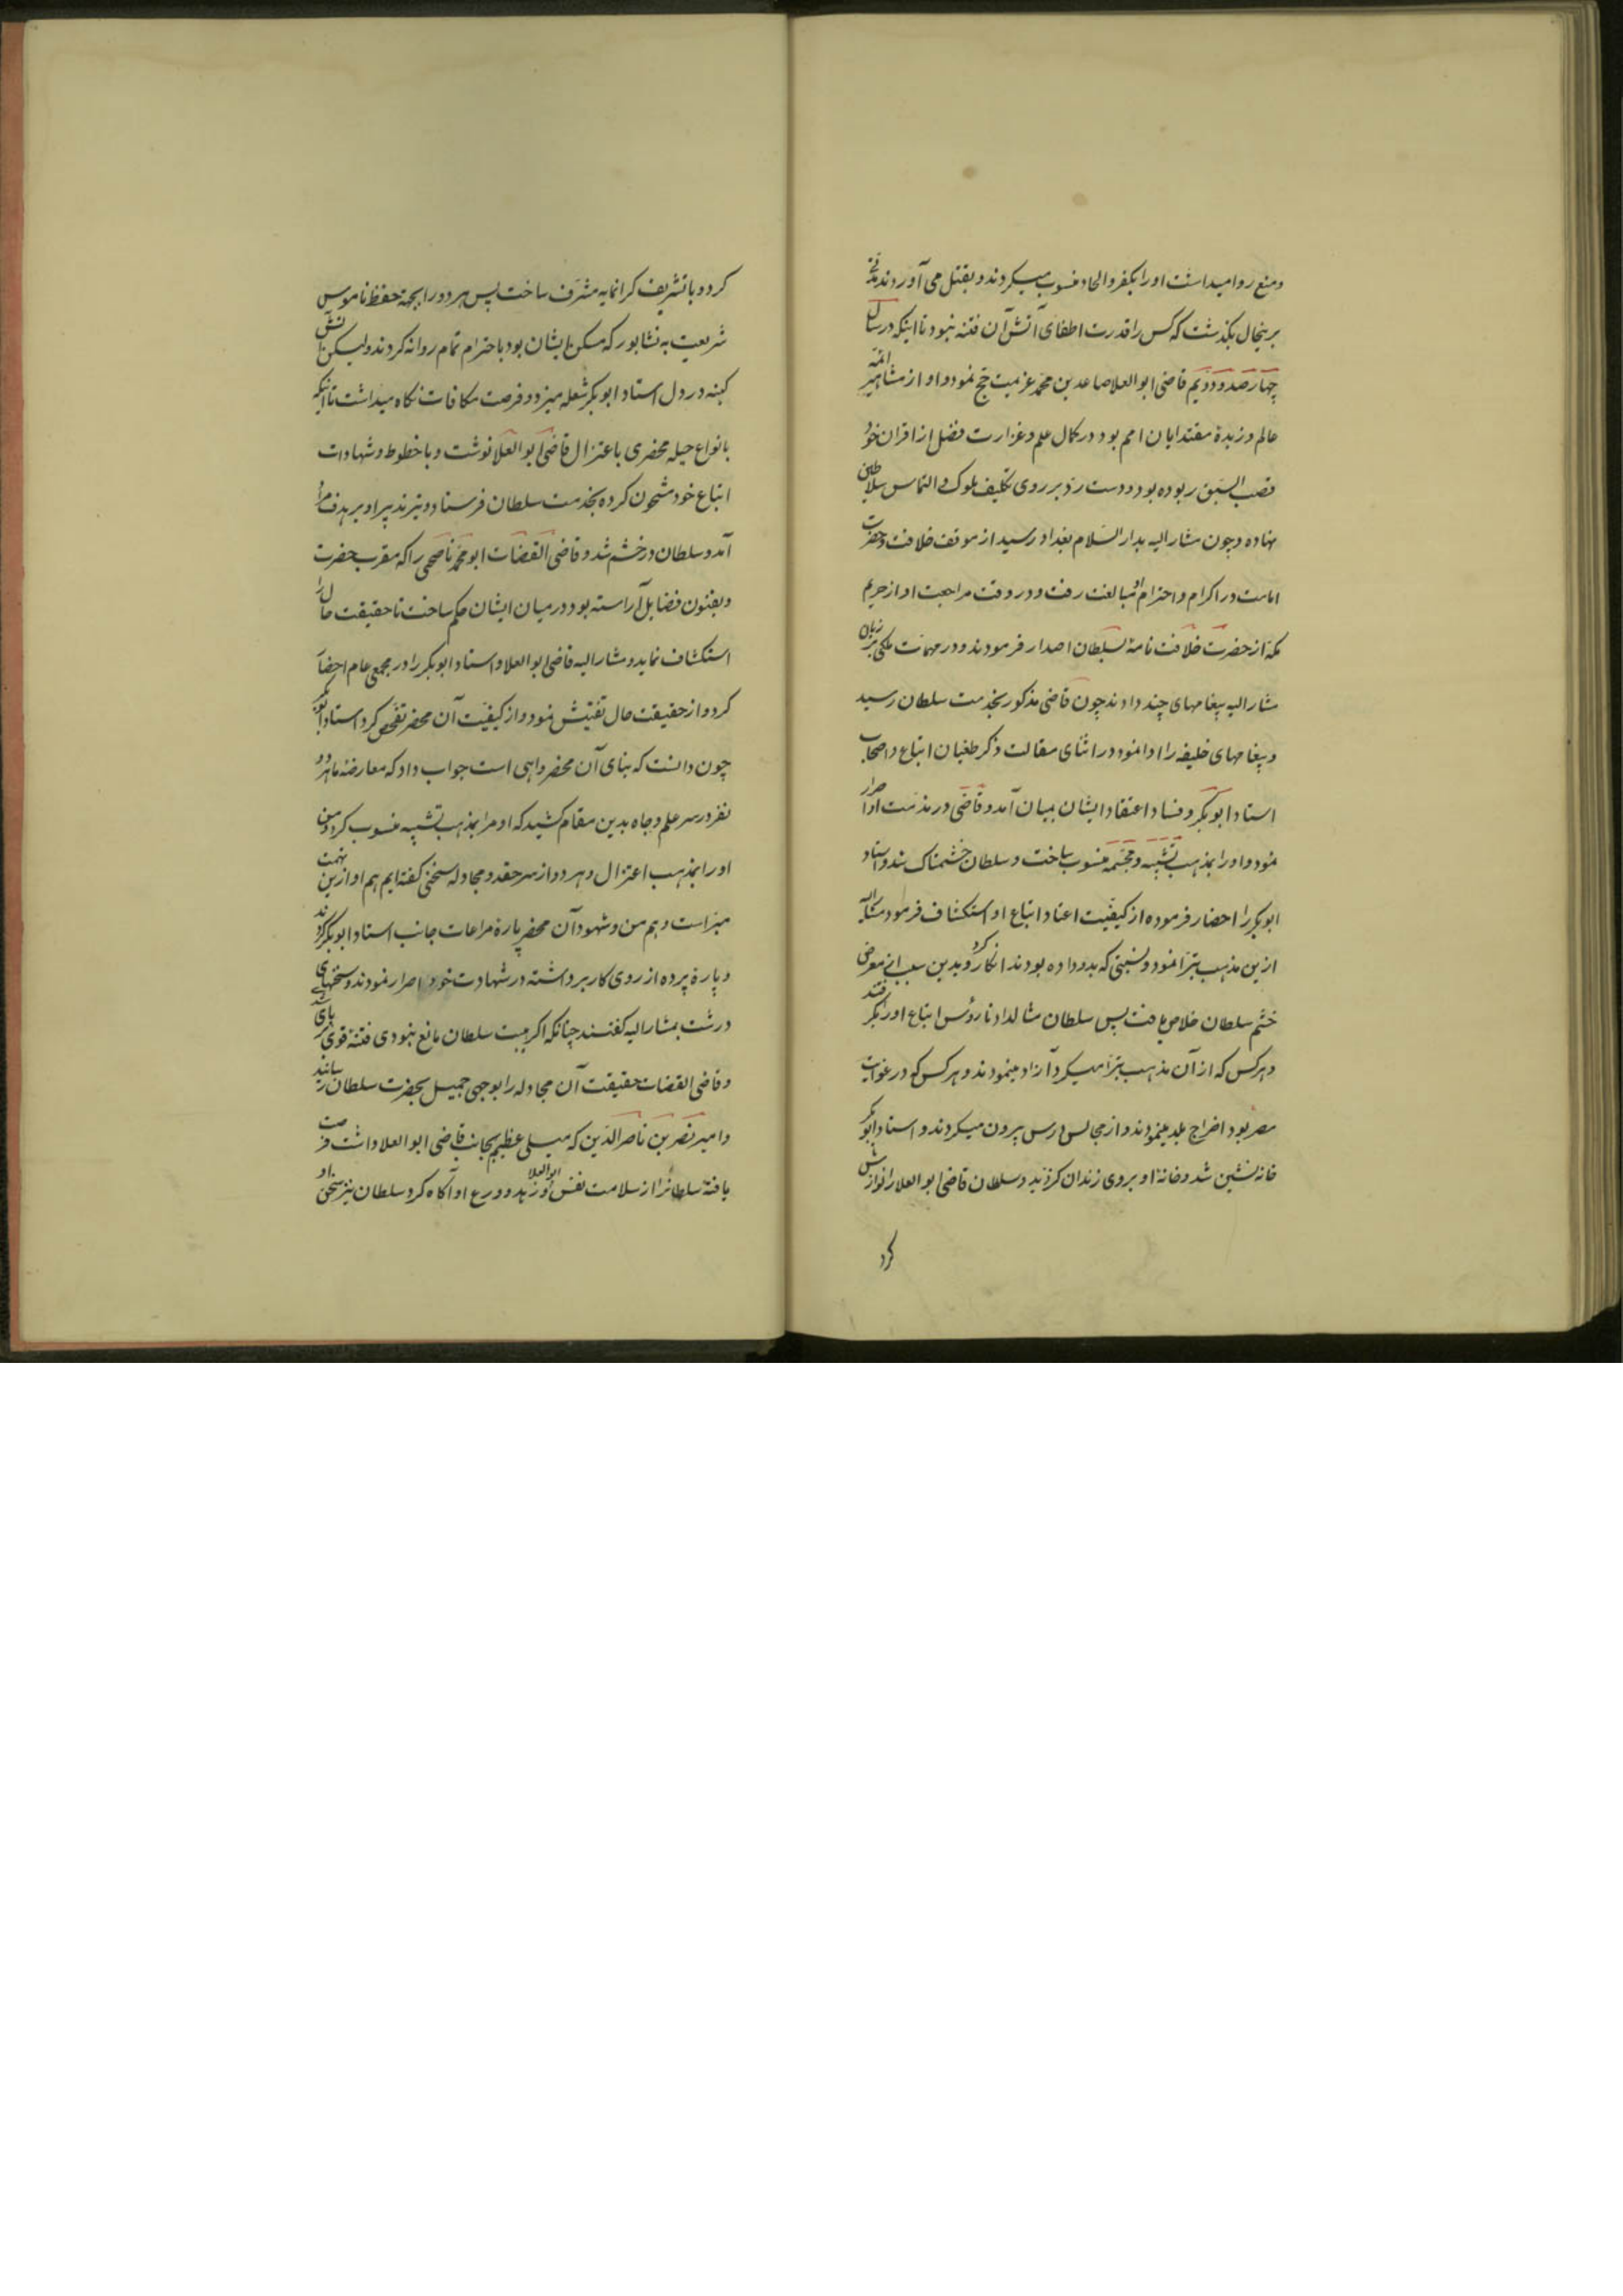 ومنع روا میداشت اورا بکفر والحاد منسوب میکردند و بقتل می آوردند مدتی
برینحال بگذشت که کس را قدرت اطفای آتش آن فتنه نبود تا اینکه در سال
چهارصد و دویم قاضی ابوالعلا صاعد بن محمد عزیمت حج نمود و او از مشاهیر ائمه
عالم و زبدة مقتدایان امم بود در کمال علم و غزارت فضل از اقران خود
قصب السبق ربوده بود و دست رد بر روی تکلیف ملوک و التماس سلاطین
نهاده و چون مشار الیه بدار السلام بغداد رسید از موقف خلافت و حضرت
امامت در اکرام و احترام او مبالغت رفت و در وقت مراجعت او از حریم
مکه از حضرت خلافت نامهٔ بسلطان اصدار فرمودند و در مهمات ملکی بر زبان
مشار الیه پیغامهای چند دادند چون قاضی مذکور بخدمت سلطان رسید
و پیغامهای خلیفه را ادا نمود در اثنای مقالت ذکر طغیان اتباع و اصحاب
استاد ابوبکر و فساد اعتقاد ایشان بمیان آمد و قاضی در مذمت او اصرار
نمود و او را بمذهب تشبیه و مجسمه منسوب ساخت و سلطان خشمناک شد و استاد
ابوبکر را احضار فرموده از کیفیت اعتاد اتباع او استکشاف فرمود مشار الیه
ازین مذهب تبرا نمود و نسبتی که بدو داده بودند انکار کرد و بدین سبب از معرض
خشم سلطان خلاص یافت پس سلطان مثال داد تا رؤس اتباع او را بگرفتند
و هرکس که از آن مذهب تبرا میکرد آزاد مینمودند و هرکس که در غوایت
مصر بود اخراج بلد مینمودند و از مجالس درس بیرون میکردند و استاد ابوبکر
خانه نشین شد و خانهٔ او بروی زندان کردند و سلطان قاضی ابوالعلا را نوازش
کرد
کرد و با تشریف گرانمایه مشرف ساخت پس هر دو را بجهة حفظ ناموس
شریعت به نشابور که مسکن ایشان بود با احترام تمام روانه کردند ولیکن آتش
کینه در دل استاد ابوبکر شعله میزد و فرصت مکافات نگاه میداشت تا اینکه
بانواع حیله محضری باعتزال قاضی ابوالعلا نوشت و با خطوط و شهادات
اتباع خود مشحون کرده بخدمت سلطان فرستاد و تیر تدبیر او بر هدف مراد
آمد و سلطان در خشم شد و قاضی القضات ابومحمد ناصحی را که مقرب حضرت
و بفنون فضایل آراسته بود در میان ایشان حکم ساخت تا حقیقت حال را
استکشاف نماید و مشار الیه قاضی ابوالعلا و استاد ابوبکر را در مجمعی عام احضار
کرد و از حقیقت حال تفتیش نمود و از کیفیت آن محضر تفحص کرد استاد ابوبکر
چون دانست که بنای آن محضر واهی است جواب داد که معارضهٔ ما هر دو
نفر در سر علم و جاه بدین مقام کشید که او مرا بمذهب تشبیه منسوب کرد و من
او را بمذهب اعتزال و هر دو از سر حقد و مجادله سخنی گفته ایم هم او ازین تهمت
مبراست و هم من و شهود آن محضر پارهٔ مراعات جانب استاد ابوبکر کردند
و پارهٔ پرده از روی کار برداشته در شهادت خود اصرار نمودند و سخنهای
درشت بمشار الیه گفتند چنانکه اگر هیبت سلطان مانع نبودی فتنهٔ قوی بر پای شدی
و قاضی القضات حقیقت آن مجادله را بوجهی جمیل بحضرت سلطان رسانید
و امیر نصر بن ناصر الدین که میلی عظیم بجانب قاضی ابوالعلا داشت فرصت
یافته سلطانرا از سلامت نفس ابوالعلا و زهد و ورع او آگاه کرد سلطان نیز سخن او